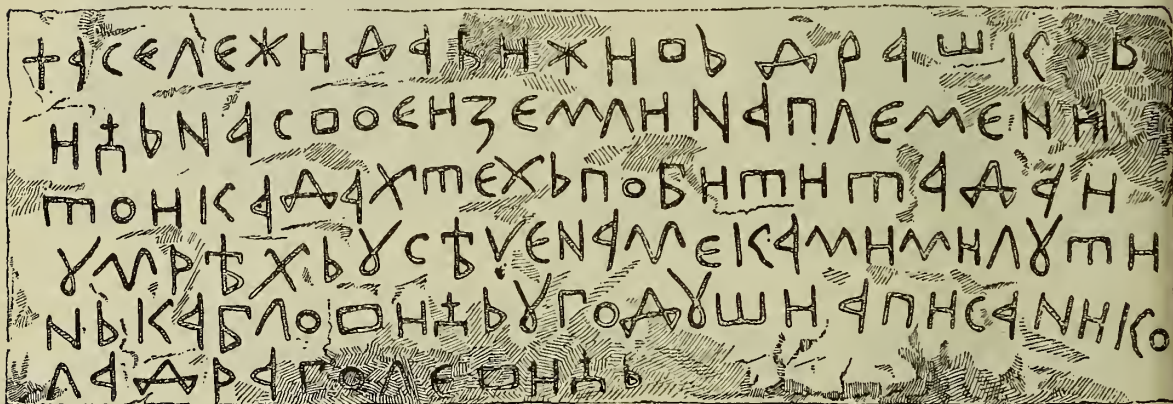 +АСЕЛЕЖИДАБИЖИВЬДРАШКОВ
ИЋЬНАСВОЕИЗЕМЛИНАПЛЕМЕНИ
ТОИКАДАХТЕХЬПОБИТИТАДАИ
ꙊМРѢХЬꙊСѢЧЕНАМЕКАМИМИЛꙊТИ
НЬКАБЛОВИЋЬꙊГОДꙊШИАПИСАНИКО
ЛАДРАГОЛЕВИЋЬ